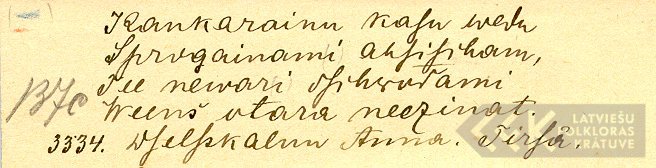 Kankarainu kasu wedu
Sprogainami ahsischam,
Tee newari dsihwodami
Weens otara neezinat.
137c
3334. Dselskalnu Anna. Tirsā.
LATVIEŠU
FOLKLORAS
KRĀTUVE